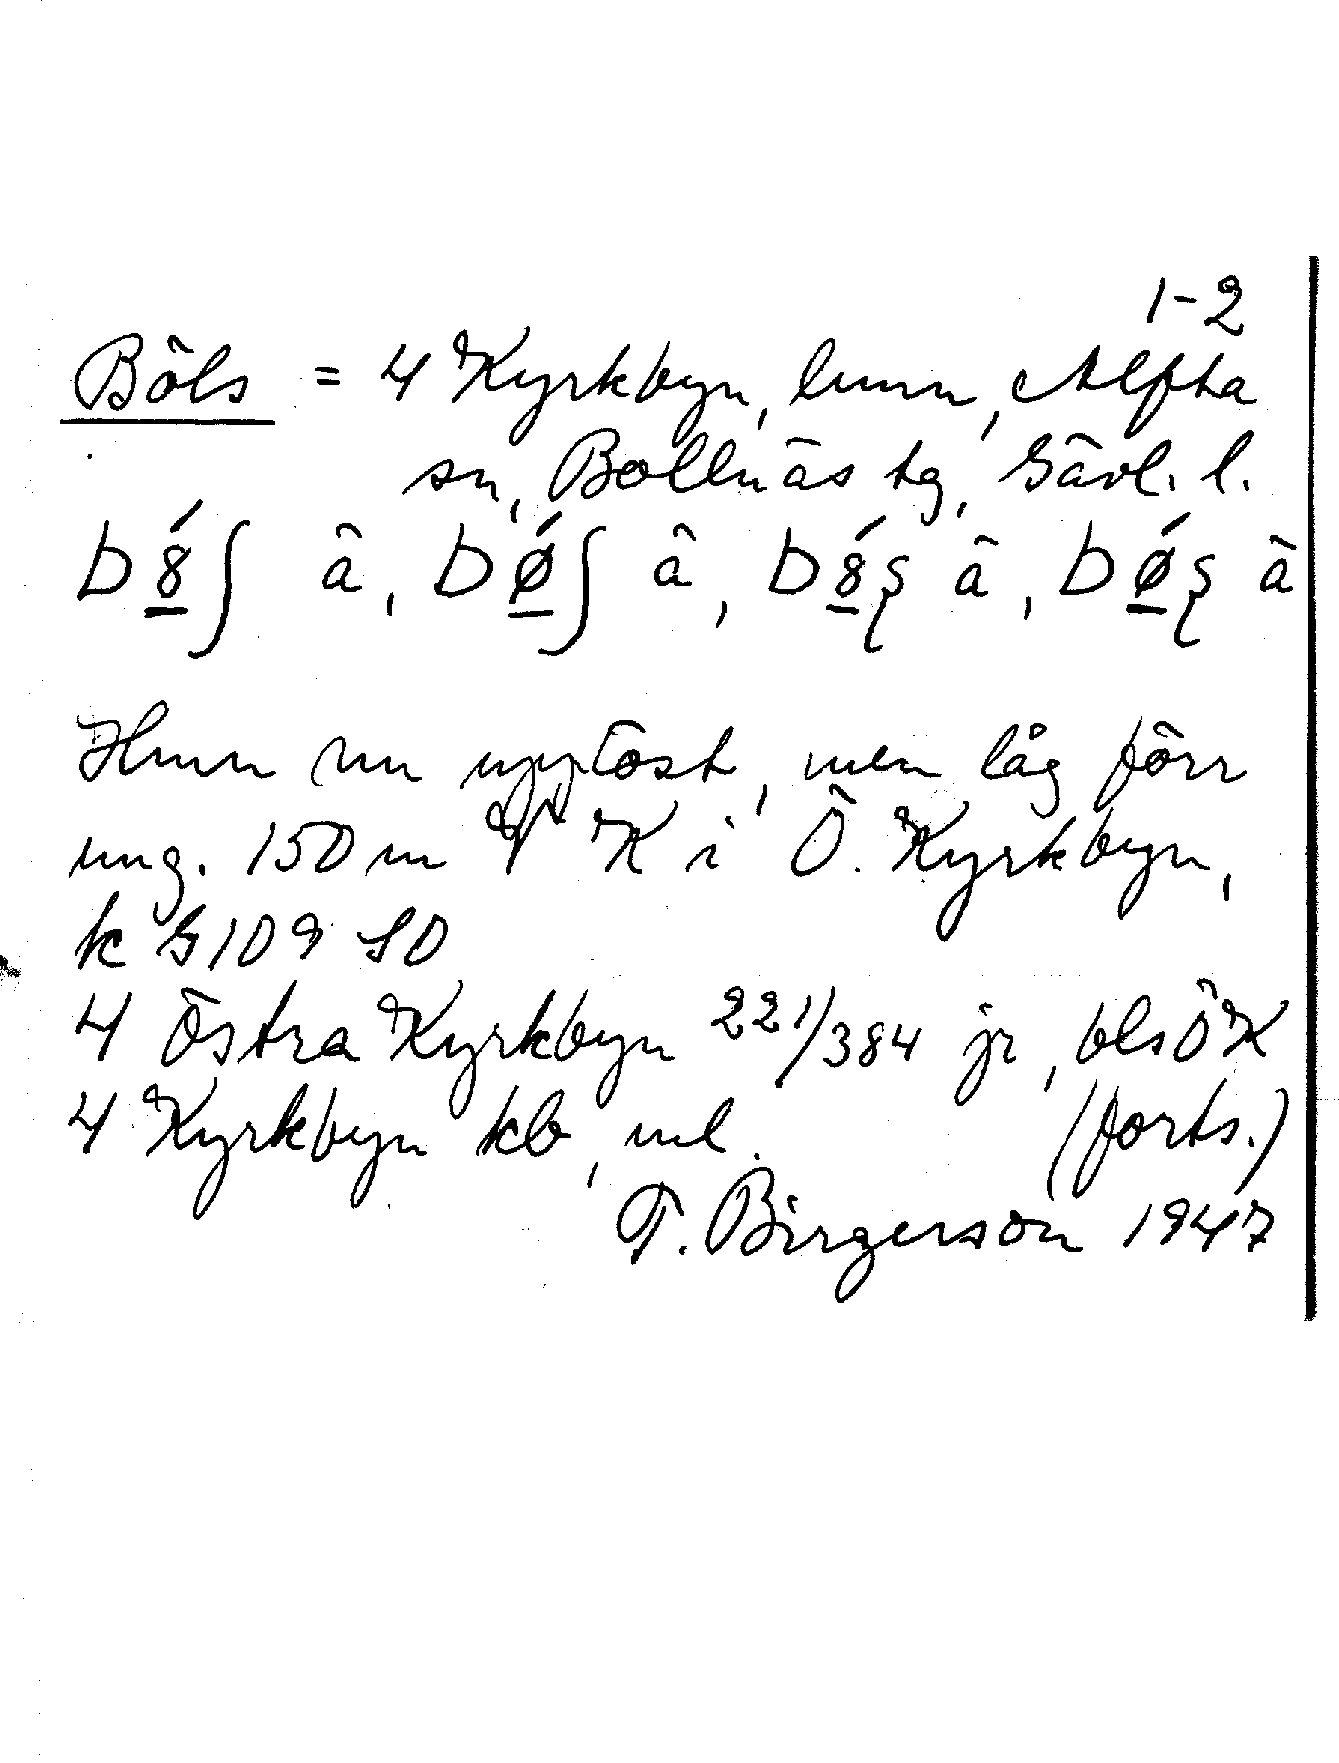 1-2
Böls = 4 Kyrkbyn, hmn, Alfta
sn, Bollnäs tg, Gävl. l.
b8́ʃ â, bǿʃ â, b8́ȿ â, bǿȿ â
Hmn nu upplöst, men låg förr
ung. 150 m V K i Ö. Kyrkbyn,
k G109 SO
4 Östra Kyrkbyn 221/384 jr, bls ÖK
4 Kyrkbyn kb, ml. (forts.)
T. Birgerson 1947